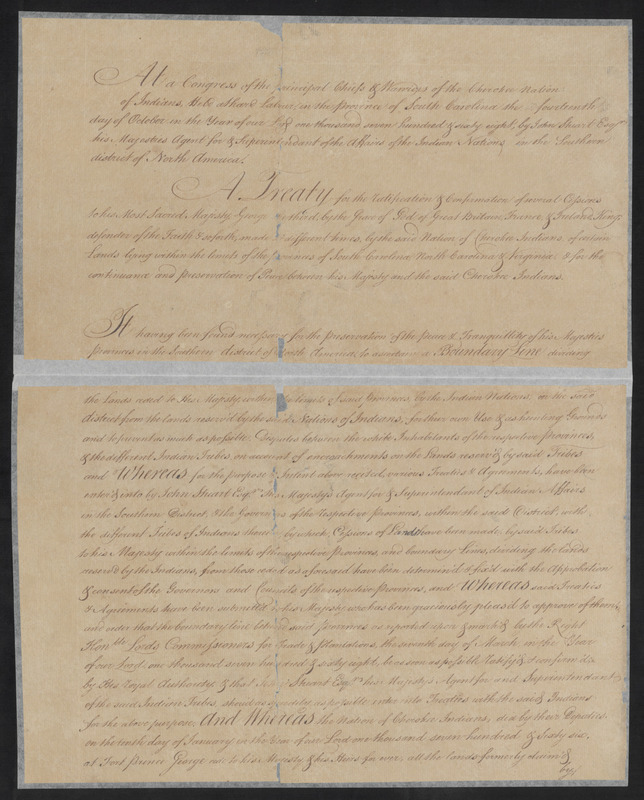 At a Congress of the Principal Chiefs & Warriors of the Cherokee Nation
of Indians, Held at Hard Labour, in the Province of South Carolina the fourteenth
day of October in the Year of our L & one thousand seven hundred & sixty eight, by John Stuart Esqr.
his Majesties Agent for & Superintendant of the Affairs of the Indian Nations, in the Southern
district of North America.
A Treaty for the Ratification & Confirmation of several Cessions
to his Most Sacred Majesty George the third, by the Grace of God of Great Britain, France, & Ireland, King
defender of the Faith & so forth, made at different times, by the said Nation of Cherokee Indians, of certain
Lands lying within the limits of the provinces of South Carolina North Carolina & Virginia & for the
continuance and preservation of Peace between his Majesty and the said Cherokee Indians.
It having been found necessary for the preservation of the peace & Tranquillity of his Majesties
Provinces in the Southern district of North America, to ascertain a Boundary Line dividing
the lands ceded to His Majesty within the limits of said provinces, by the Indian Nations, in the said
district from the lands reserv'd by the said Nations of Indians, for their own Use & as hunting Grounds
and to prevent as much as possible Disputes between the white Inhabitants of the respective provinces,
& the different Indian Tribes, on account of encroachments on the Lands reserv'd by said Tribes
and Whereas for the purpose & Intent above recited, various Treaties & Agreements, have been
enter'd into by John Stuart Esqr. His Majesty's Agent for & Superintendant of Indian Affairs
in the Southern District, & the Governors of the respective provinces, within the said District, with
the different Tribes of Indians by which, Cessions of Land have been made, by said Tribes
to his Majesty within the limits of the respective Provinces, and boundary Lines, dividing the lands
reserv'd by the Indians, from those ceded as aforesaid have been determin'd & fix'd with the Approbation
& consent of the Governors and Councils of the respective Provinces, and Whereas said Treaties
& Agreements have been submitted to his Majesty who has been graciously pleas'd to approve of them,
and order that the boundary line between said provinces as reported upon & mark'd by the Right
Honble. Lords Commissioners for Trade & Plantations, the seventh day of March in the Year
of our Lord, one thousand seven hundred & sixty eight, be as soon as possible Ratify'd & confirm'd
by His Royal Authority & that John Stuart Esqr. his Majesty's Agent for and Superintendant
of the said Indian Tribes, should as speedily as possible enter into Treaties with the said Indians
for the above purpose. And Whereas the Nation of Cherokee Indians, did by their Deputies
on the tenth day of January in the Year of our Lord one thousand seven hundred & Sixty six,
at Fort prince George cede to his Majesty & his Heirs for ever, all the lands formerly claim'd
by